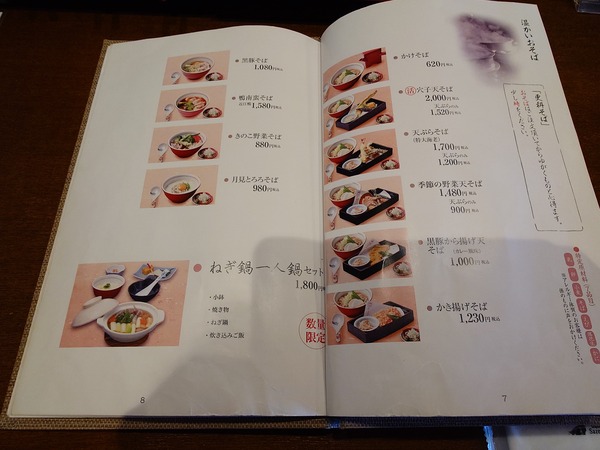 温かいおそば
「更科そば」
かけそば
620円税込
活穴子天そば
2,000円税込
天ぷらのみ
1,520円税込
天ぷらそば
(特大海老)
1,700円税込
天ぷらのみ
1,200円税込
季節の野菜天そば
1,480円税込
天ぷらのみ
900円税込
黒豚から揚げ天
そば
1,000円税込
かき揚げそば
1,230円税込
7
黒豚そば
1,080円税込
鴨南蛮そば
1,580円税込
きのこ野菜そば
880円税込
月見とろろそば
980円税込
ねぎ鍋一人鍋セット
1,800円税込
・小鉢
・焼き物
・ねぎ鍋
・炊き込みご飯
数量
限定
8